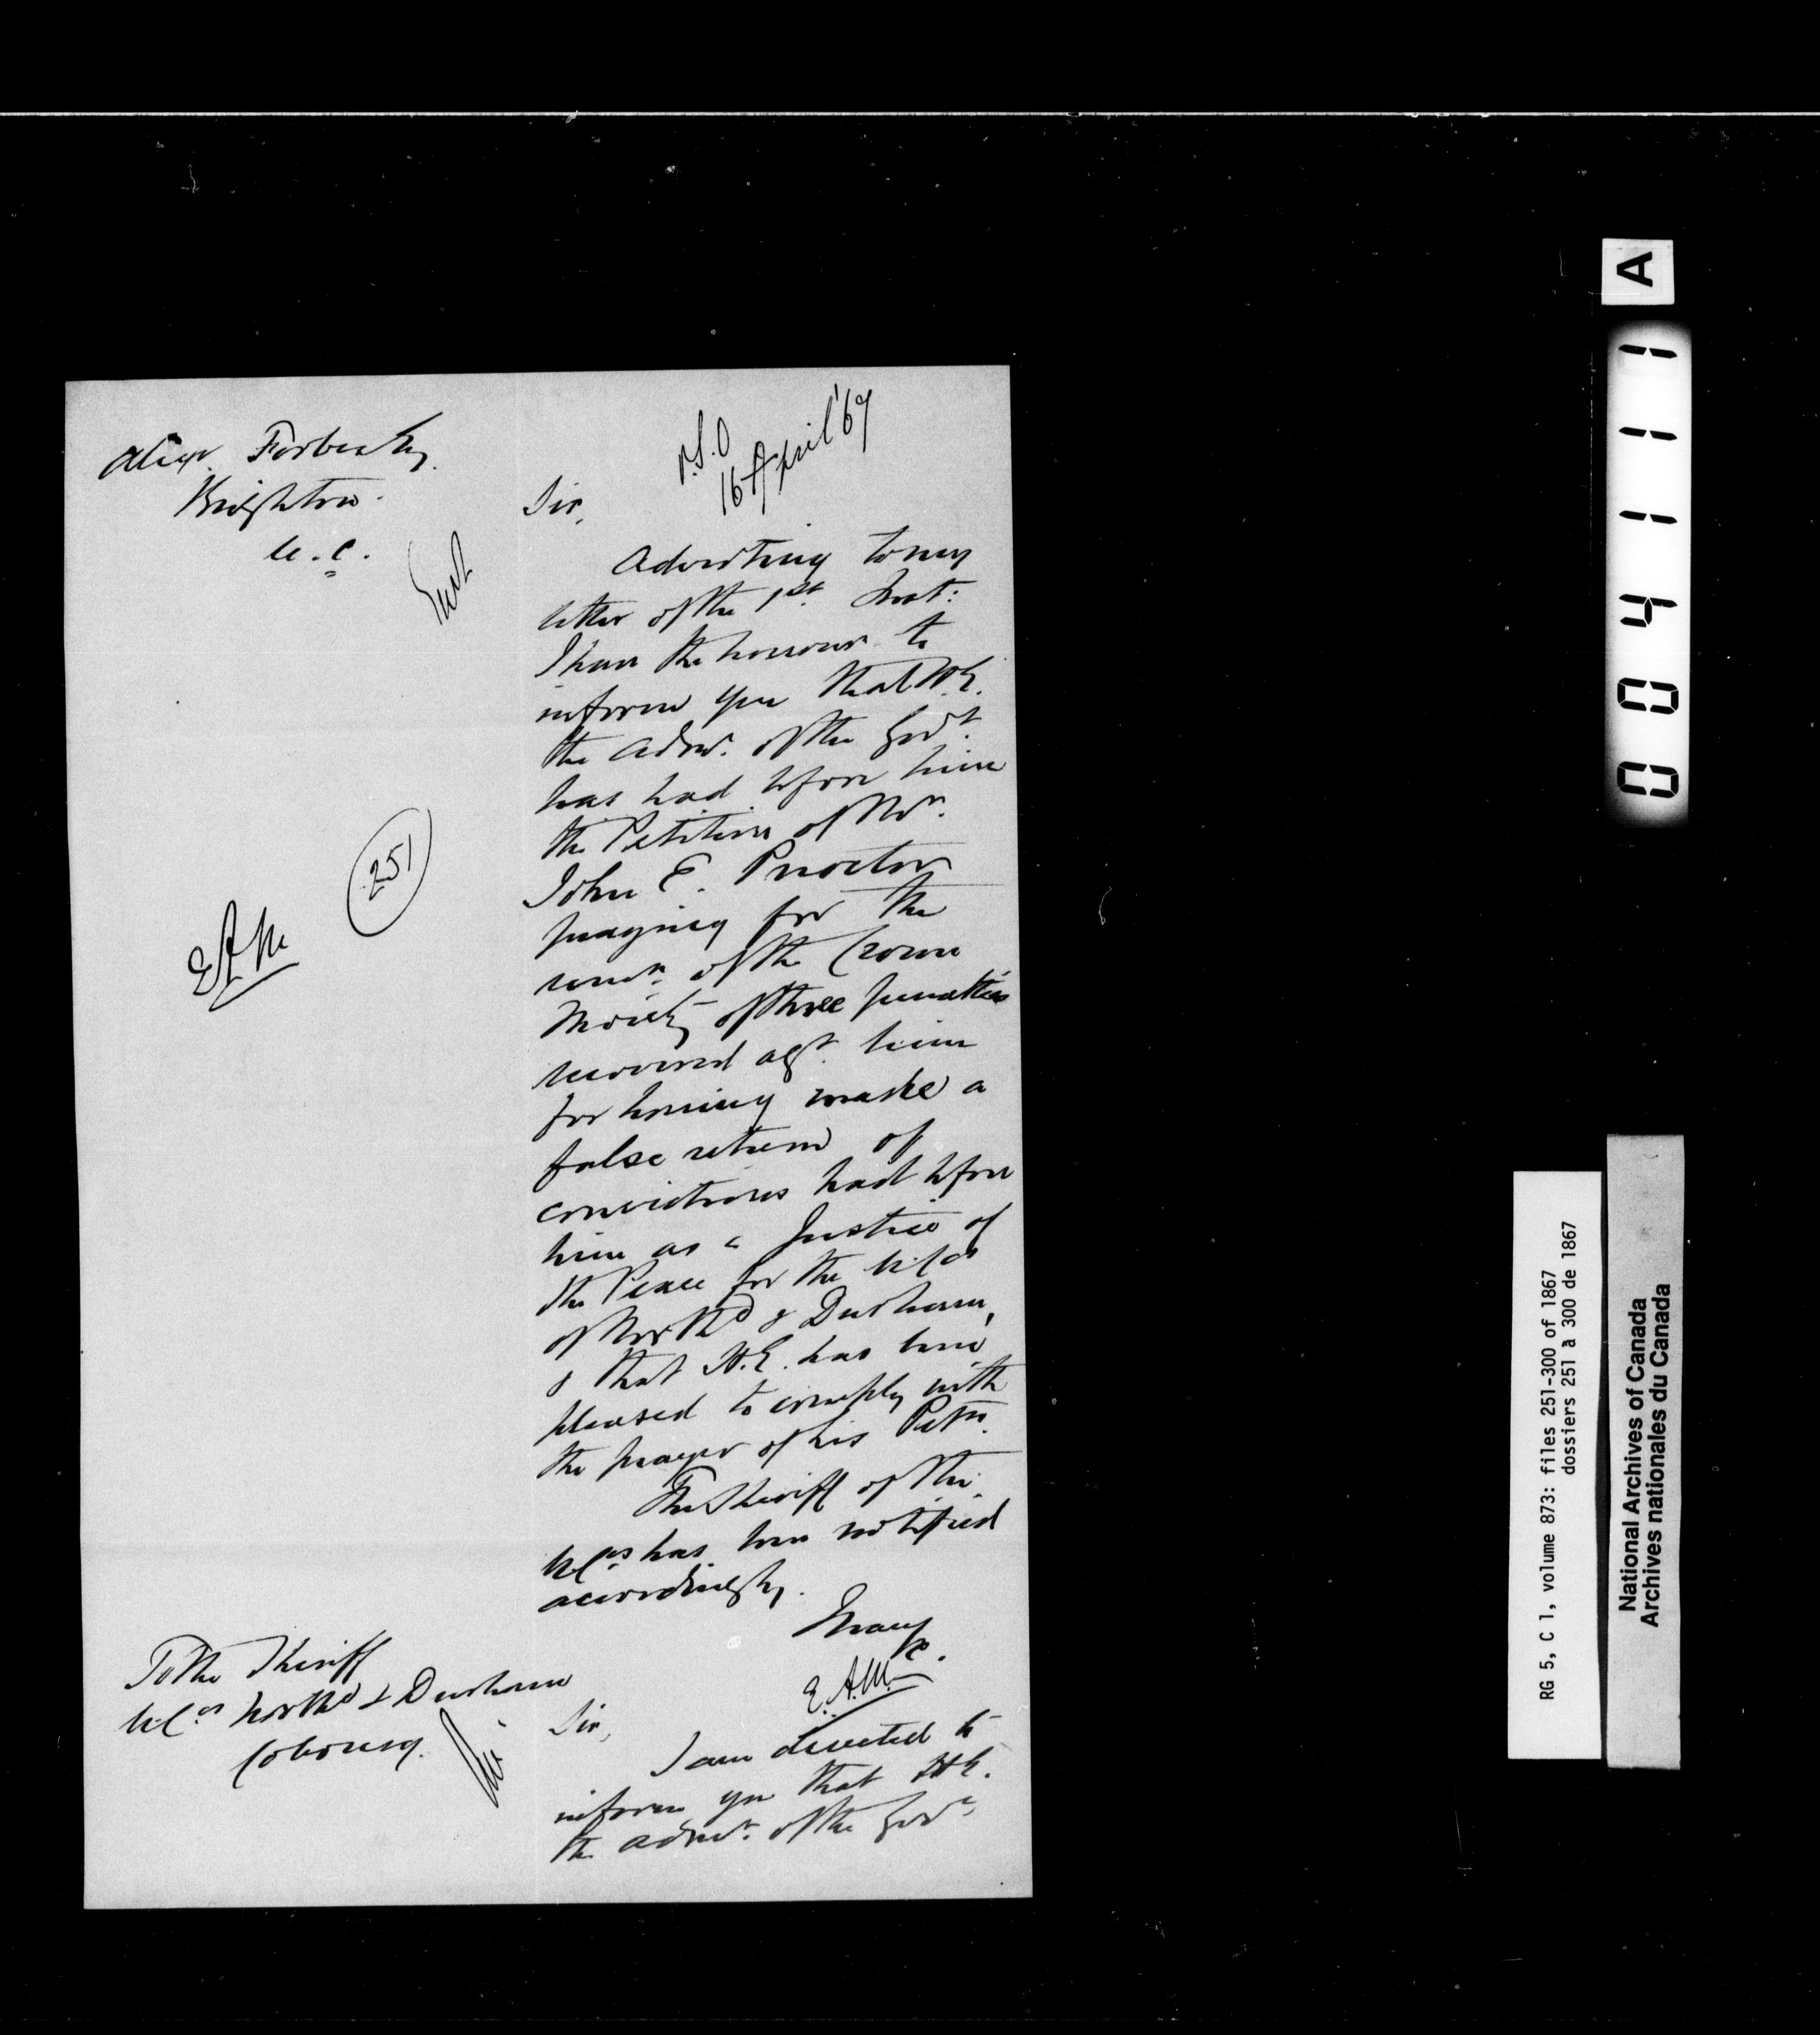 Alexr. Forbes Esq.
Brighton.
U. C.
P.S.O
16 April '67
Sir,
Adverting to my
letter of the 1st Inst:
I have the honour to
inform you that H.E.
the Admr. of the Govt.
has had before him
the Petition of Mr.
John E. Proctor
praying for the
remn. of the Crown
Moiety of three penalties
recovered agt. him
for having make a
false return of
convictions had before
him as a Justice of
the Peace for the U. Cos
of Northd & Durham,
& that H.E. has been
pleased to comply with
the prayer of his Petn.
The Sheriff of the
U Cos has been notified
accordingly.
E.A.M.
251
E.A.M
To the Sheriff
U Cos Northd & Durham
Cobourg.
Sir,
I am directed to
inform you that H.E.
the Admr. of the Govt.
A
004111
RG 5, C 1, volume 873: files 251-300 of 1867
dossiers 251 à 300 de 1867
National Archives of Canada
Archives nationales du Canada